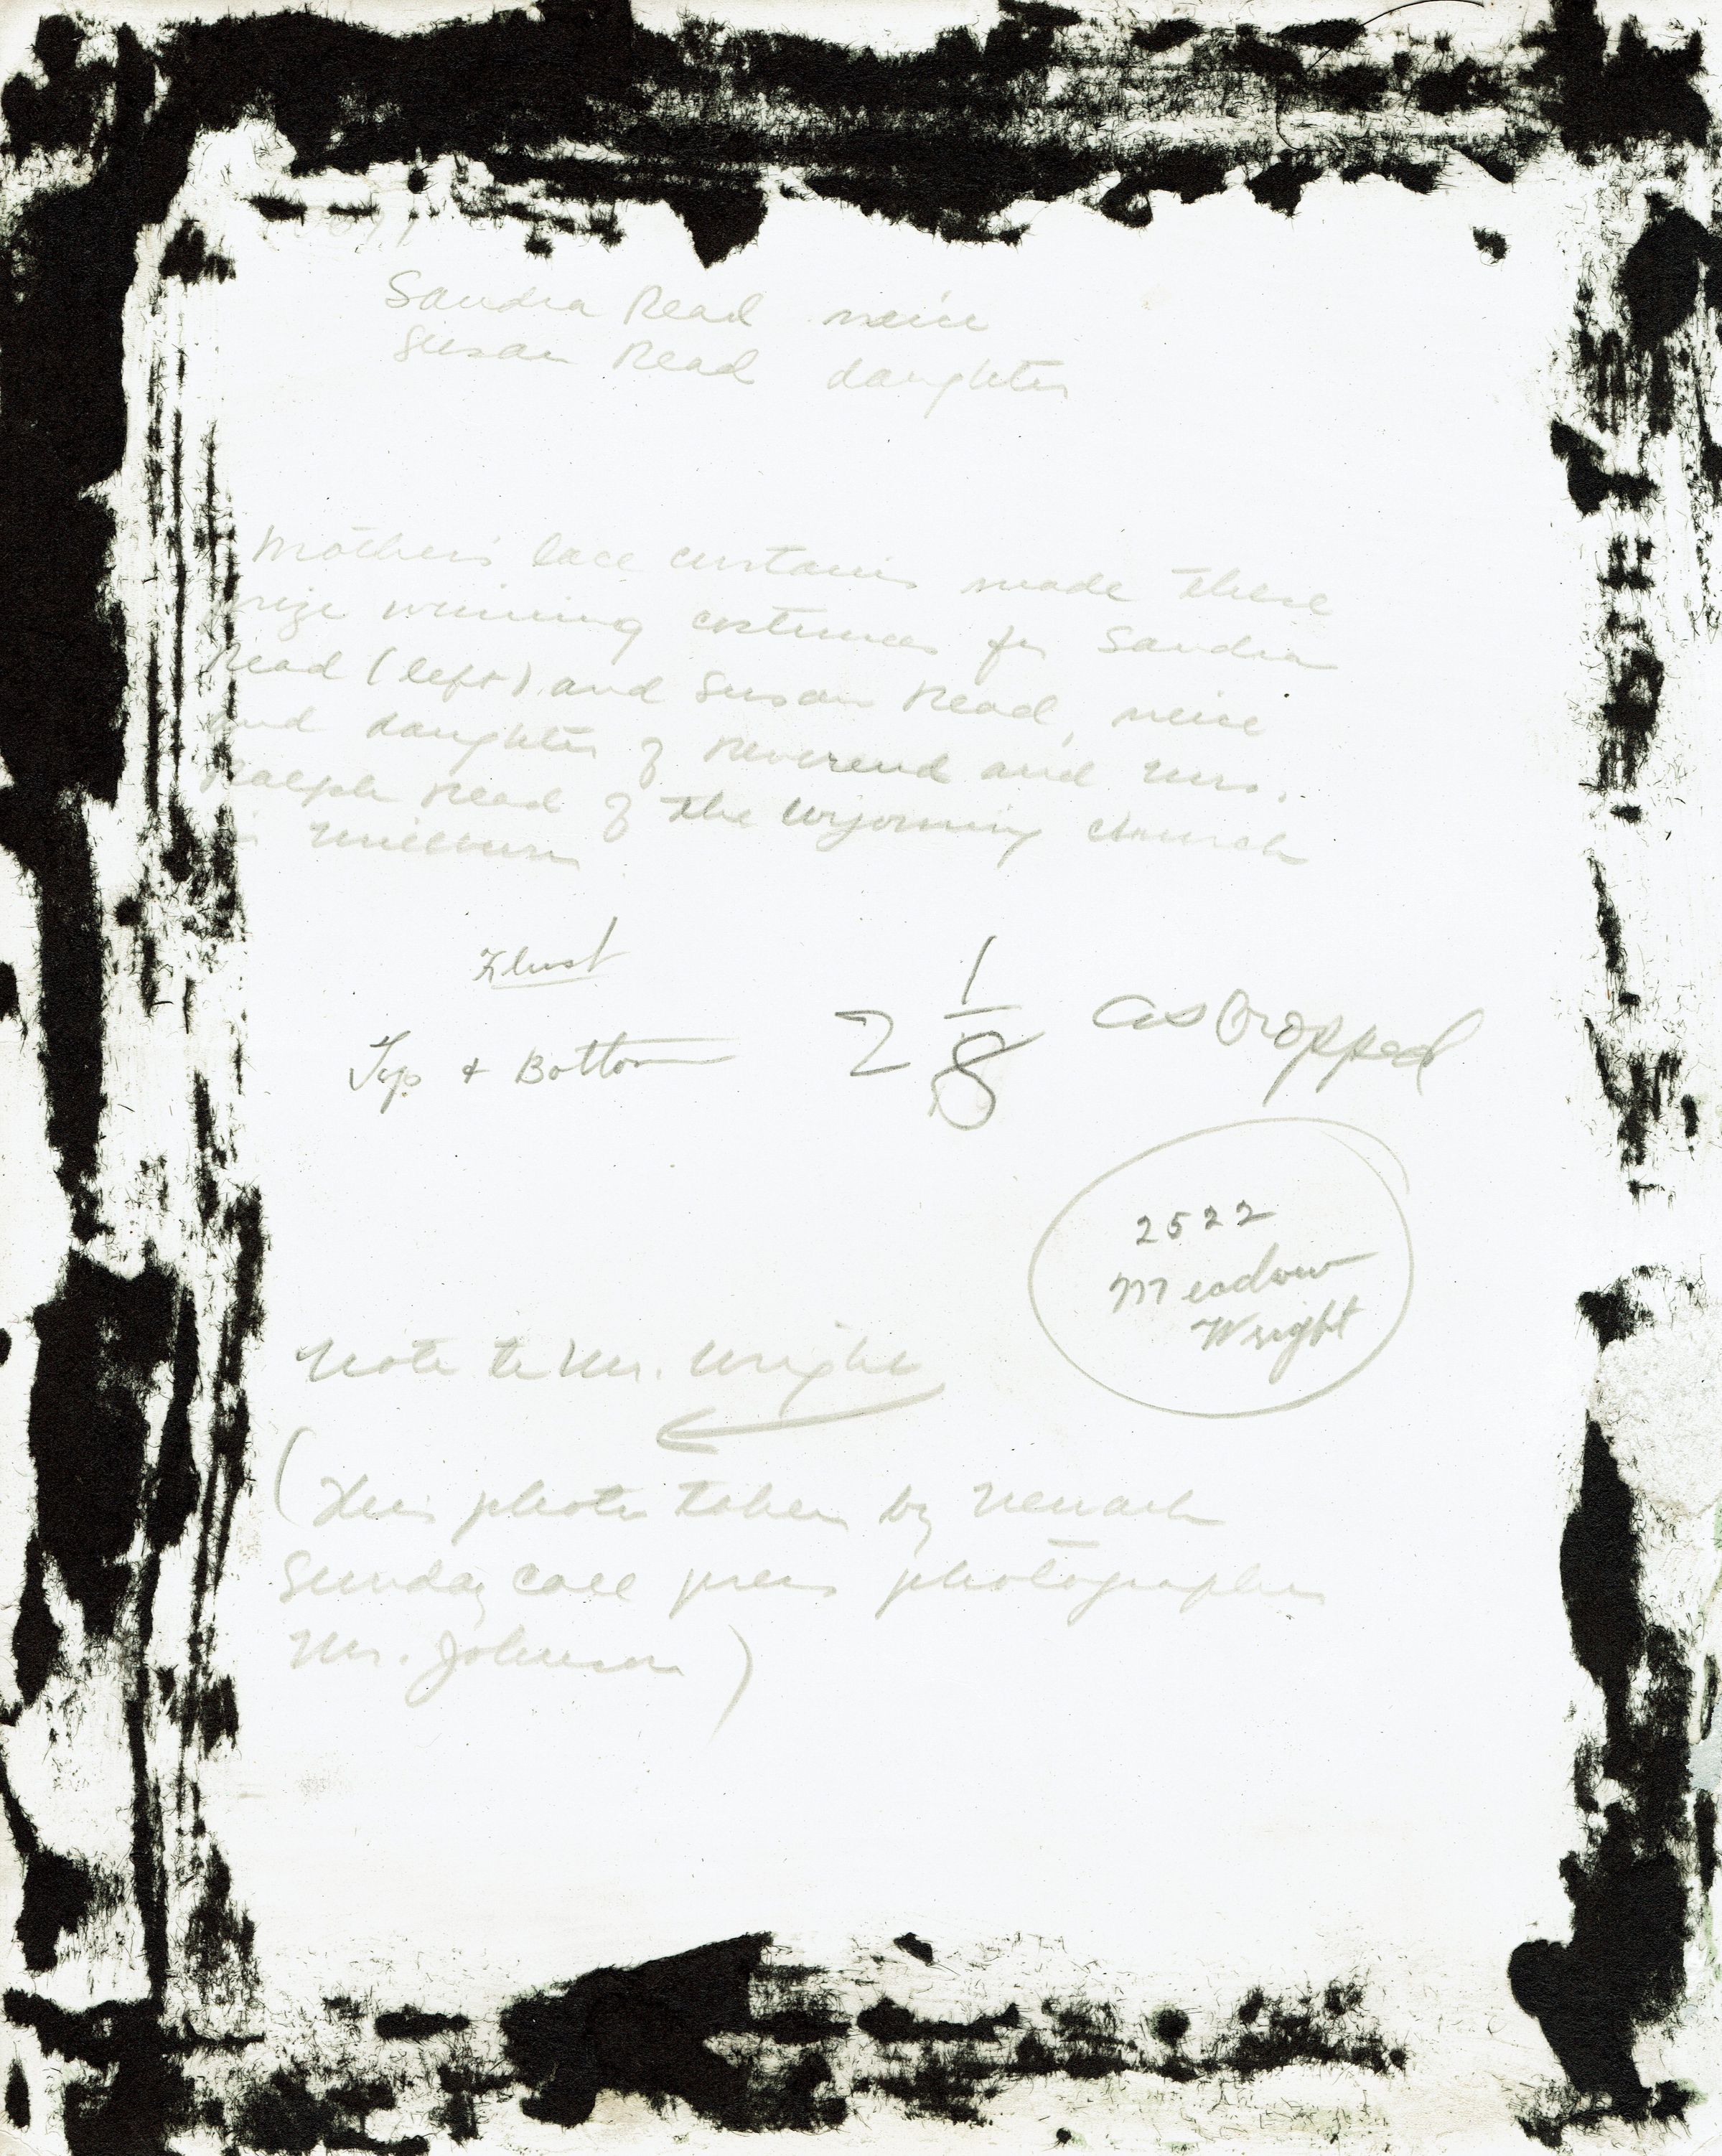 Sandra Read neice
Susan Read daughter
Mothers' lace curtains made these
prize winning costumes for Sandra
Read (left) and Susan Read, neice
and daughter of Reverend and Mrs.
Ralph Read of the Wyoming church
in Millburn
Flush
Top + Bottom
2 1/8 as cropped
2522
Meadow
Wright
Note to Mr. Wright
(This photo taken by Newark
Sunday Call press photographer
Mr. Johnson)